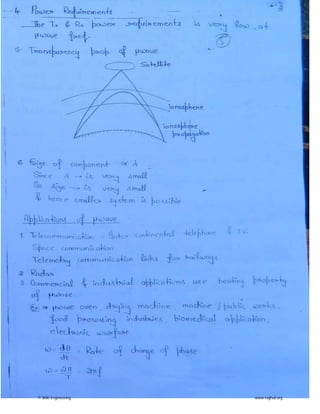 4. Power Requirements
The Tx & Rx power requirements is very low at
μwave freq.
5. Transparency prop of μwave
Satellite
ionosphere
ionosphere
propagation
6. Size of component α λ
Since λ → is very small
So size → is very small
& hence smaller system is possible
Applications of μwave
1. Telecommunication - Inter continental telephone & TV
Space communication
Telemetry communication links for railways
2. Radar
3. Commercial & industrial applications use heating property
of μwave
Ex → μwave oven, drying machine, machine / public works,
food processing industries, biomedical application,
electronic warfare
ω = dθ/dt = Rate of change of phase
ω = 2π/T = 2πf
www.raghul.org